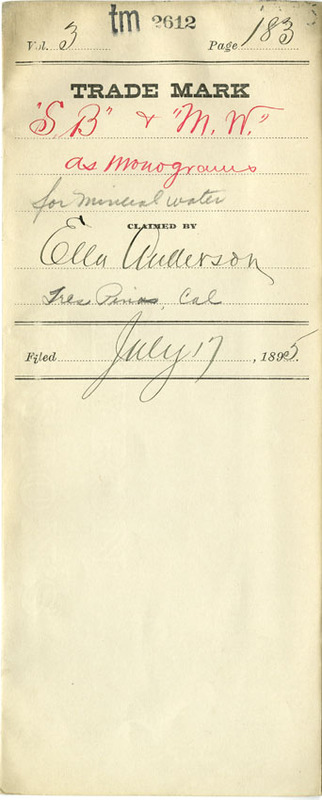 tm 2612
Vol. 3 Page 183
TRADE MARK
"S. B" & "M. W."
as monograms
for mineral water
CLAIMED BY
Ella Anderson
Tres Pinos, Cal
Filed July 17, 1895.